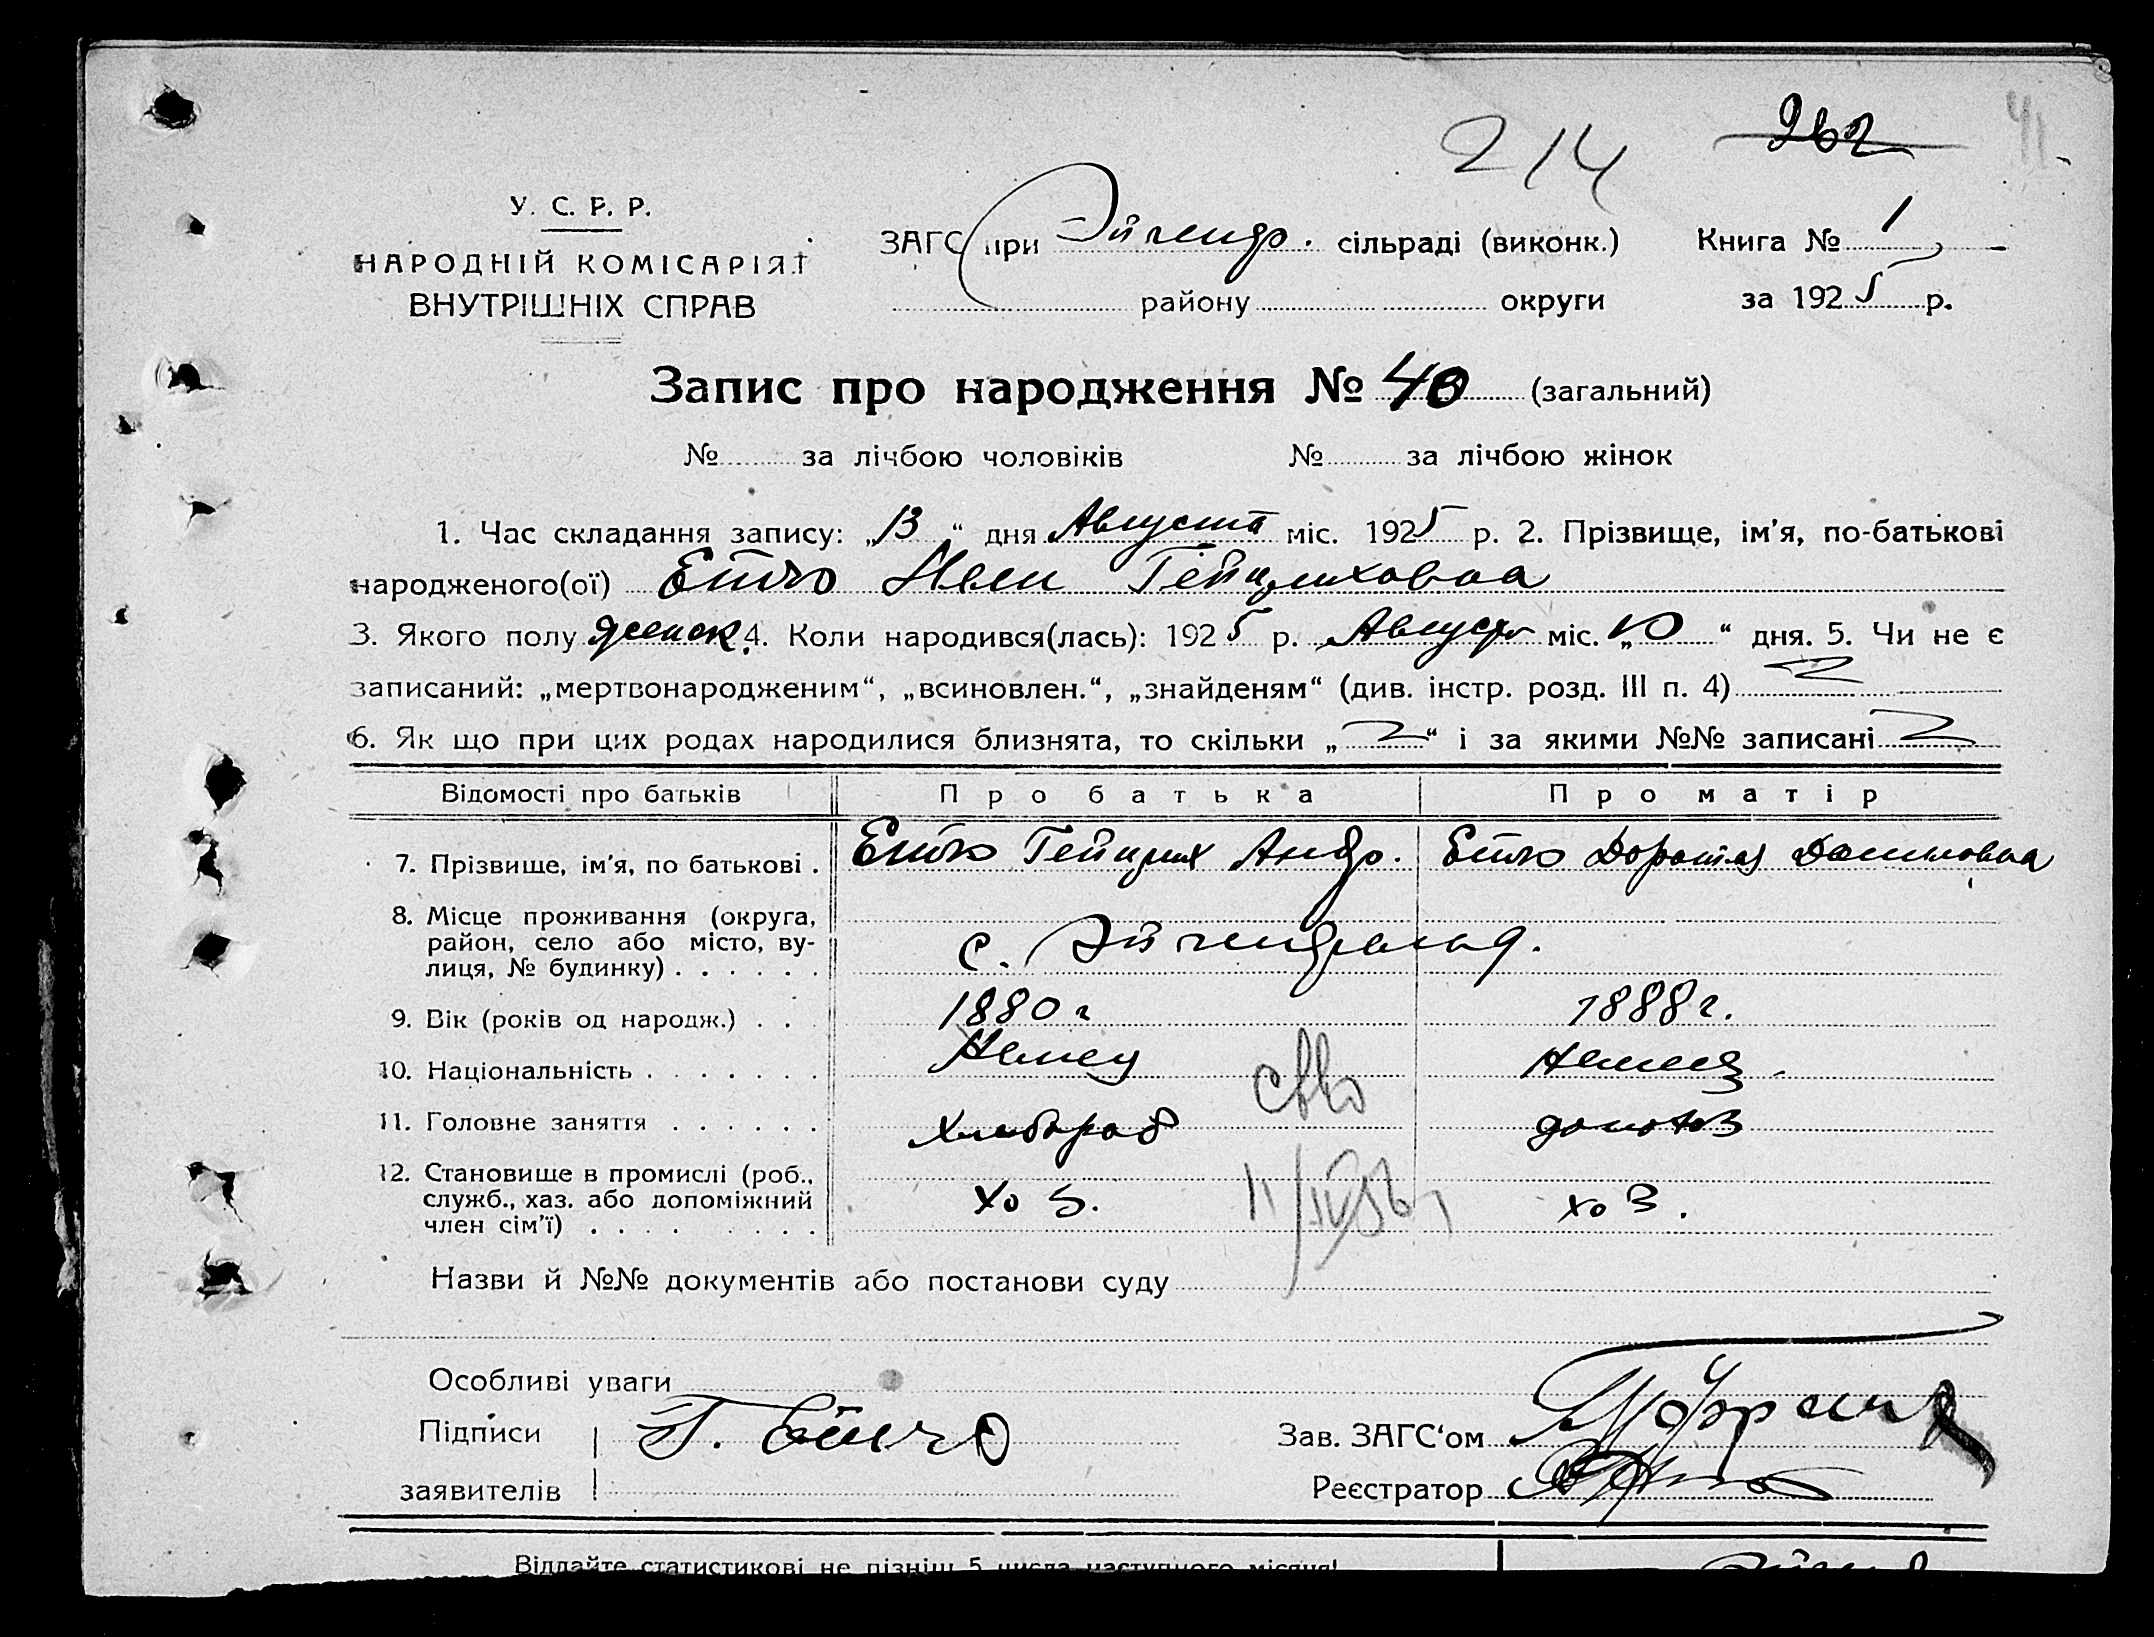 214 262 41.
У. С. Р. Р.
НАРОДНІЙ КОМІСАРІЯТ
ВНУТРІШНІХ СПРАВ
ЗАГС при Эйгенф. сільраді (виконк.) Книга № 1
району округи за 1925 р.
Запис про народження № 40 (загальний)
№ за лічбою чоловіків № за лічбою жінок
1. Час складання запису: „13“ дня Августа міс. 1925 р. 2. Прізвище, ім'я, по-батькові
народженого(ої) Нели Гейнриховна
3. Якого полу женск. 4. Коли народився(лась): 1925 р. Август міс. „10“ дня. 5. Чи не є
записаний: „мертвонародженим“, „всиновлен.“, „знайденям“ (див. інстр. розд. III п. 4)
6. Як що при цих родах народилися близнята, то скільки „ “ і за якими №№ записані
Відомості про батьків Про батька Про матір
7. Прізвище, ім'я, по батькові . Гейнрих Андр. Доротея
8. Місце проживання (округа,
район, село або місто, ву-
лиця, № будинку) . . . . . . с. Эйгенфельд.
9. Вік (років од народж.) . . 1880 г 1888 г.
10. Національність . . . . . . . Немец Немец
11. Головне заняття . . . . . . Хлебороб домохоз
12. Становище в промислі (роб.,
служб., хаз. або допоміжний
член сім'ї) . . . . . . . . хоз. хоз.
Назви й №№ документів або постанови суду
Особливі уваги
Підписи
заявителів
Зав. ЗАГС'ом
Реєстратор
Віддайте статистикові не пізніш 5 числа наступного місяця!